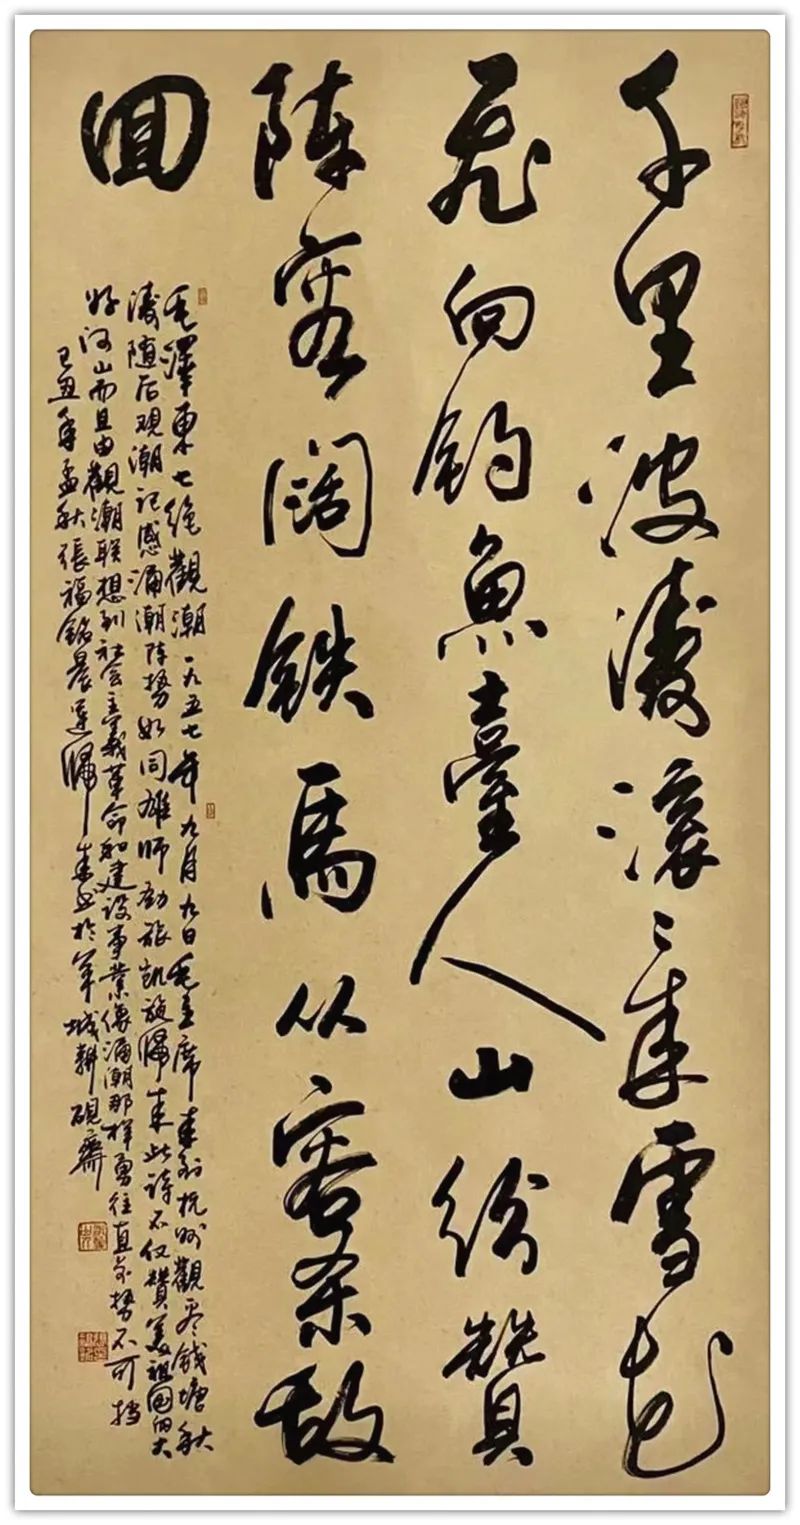 千里波涛滚滚来雪花
飛向钓魚臺人山纷赞
陣容阔铁馬从容杀敌
回
毛澤東七绝觀潮一九五七年九月九日毛主席来到杭州觀看钱塘秋
涛随后观潮记感涌潮阵势如同雄师劲旅凯旋归来此诗不仅赞美祖国的大
好河山而且由觀潮联想到社会主義革命和建设事業像涌潮那样勇往直前势不可挡
己丑年孟秋張福铭晨運归来书於军城耕硯斋